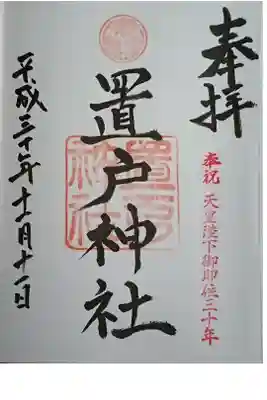 奉拝
奉祝 天皇陛下御即位三十年
置戸神社
置戸神社
平成三十年十一月十一日